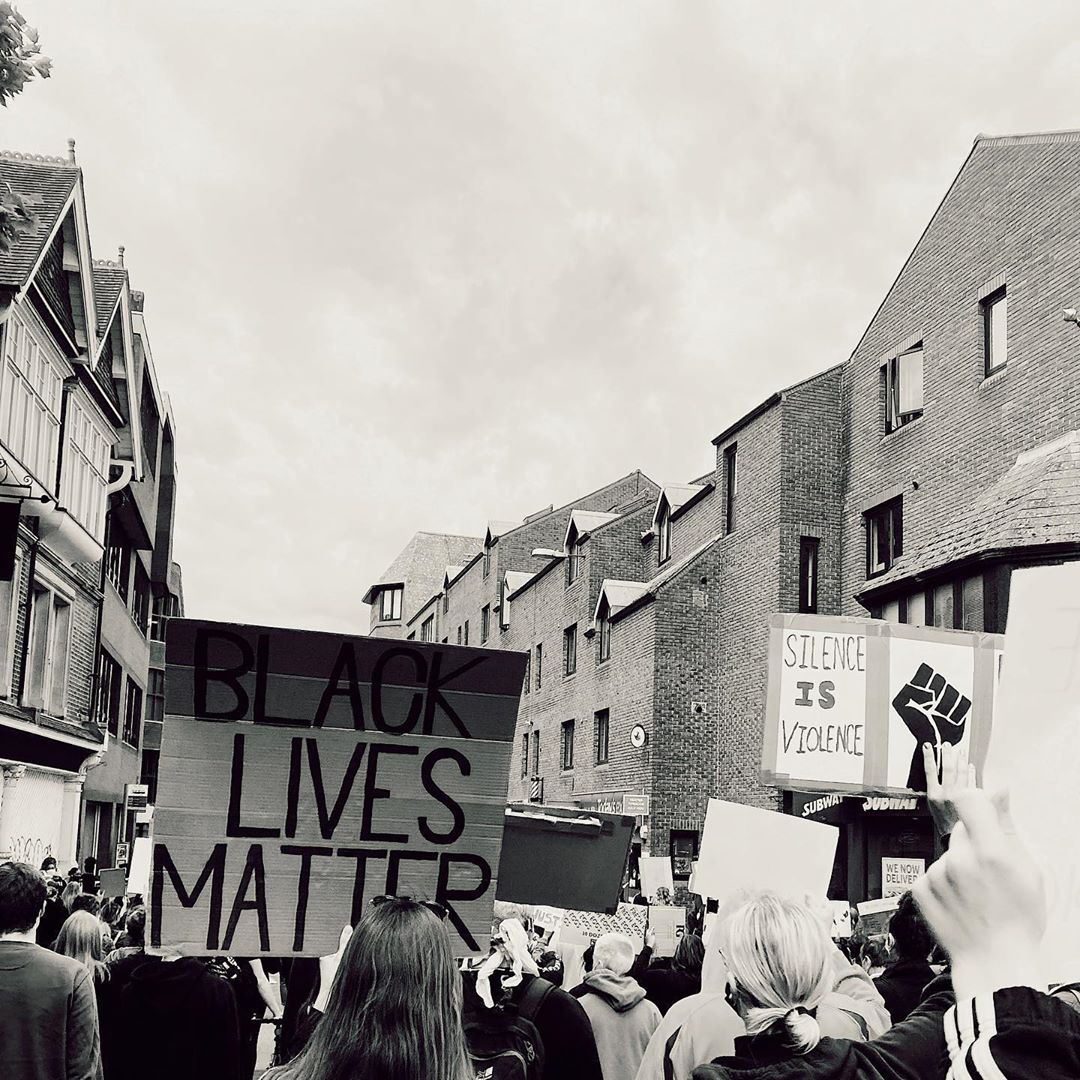 BLACK
LIVES
MATTER
SILENCE
IS
VIOLENCE
SUBWAY
SUBWAY
WE NOW
DELIVER
JUST